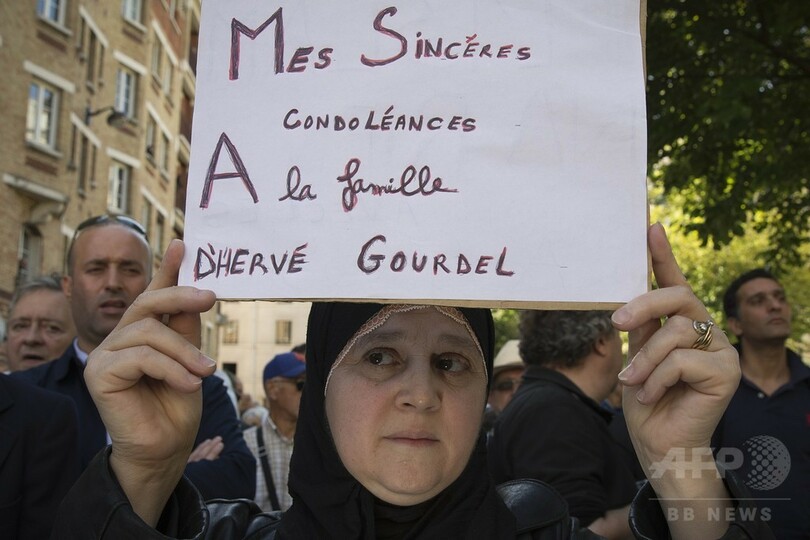 MES SINCÉRES
CONDOLÉANCES
A la famille
D'HERVÉ GOURDEL
AFP
BB NEWS